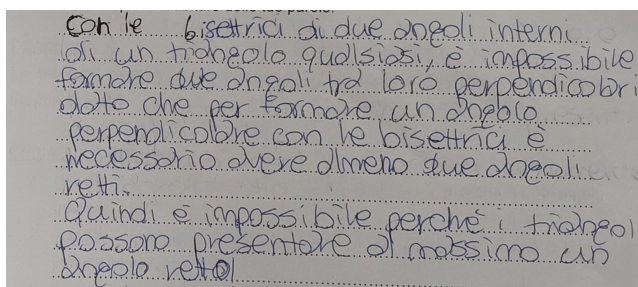 con le bisettrici di due angoli interni
di un triangolo qualsiasi, è impossibile
formare due angoli tra loro perpendicolari
dato che per formare un angolo
perpendicolare con le bisettrici è
necessario avere almeno due angoli
retti.
Quindi è impossibile perché i triangol
possono presentare al massimo un
angolo retto